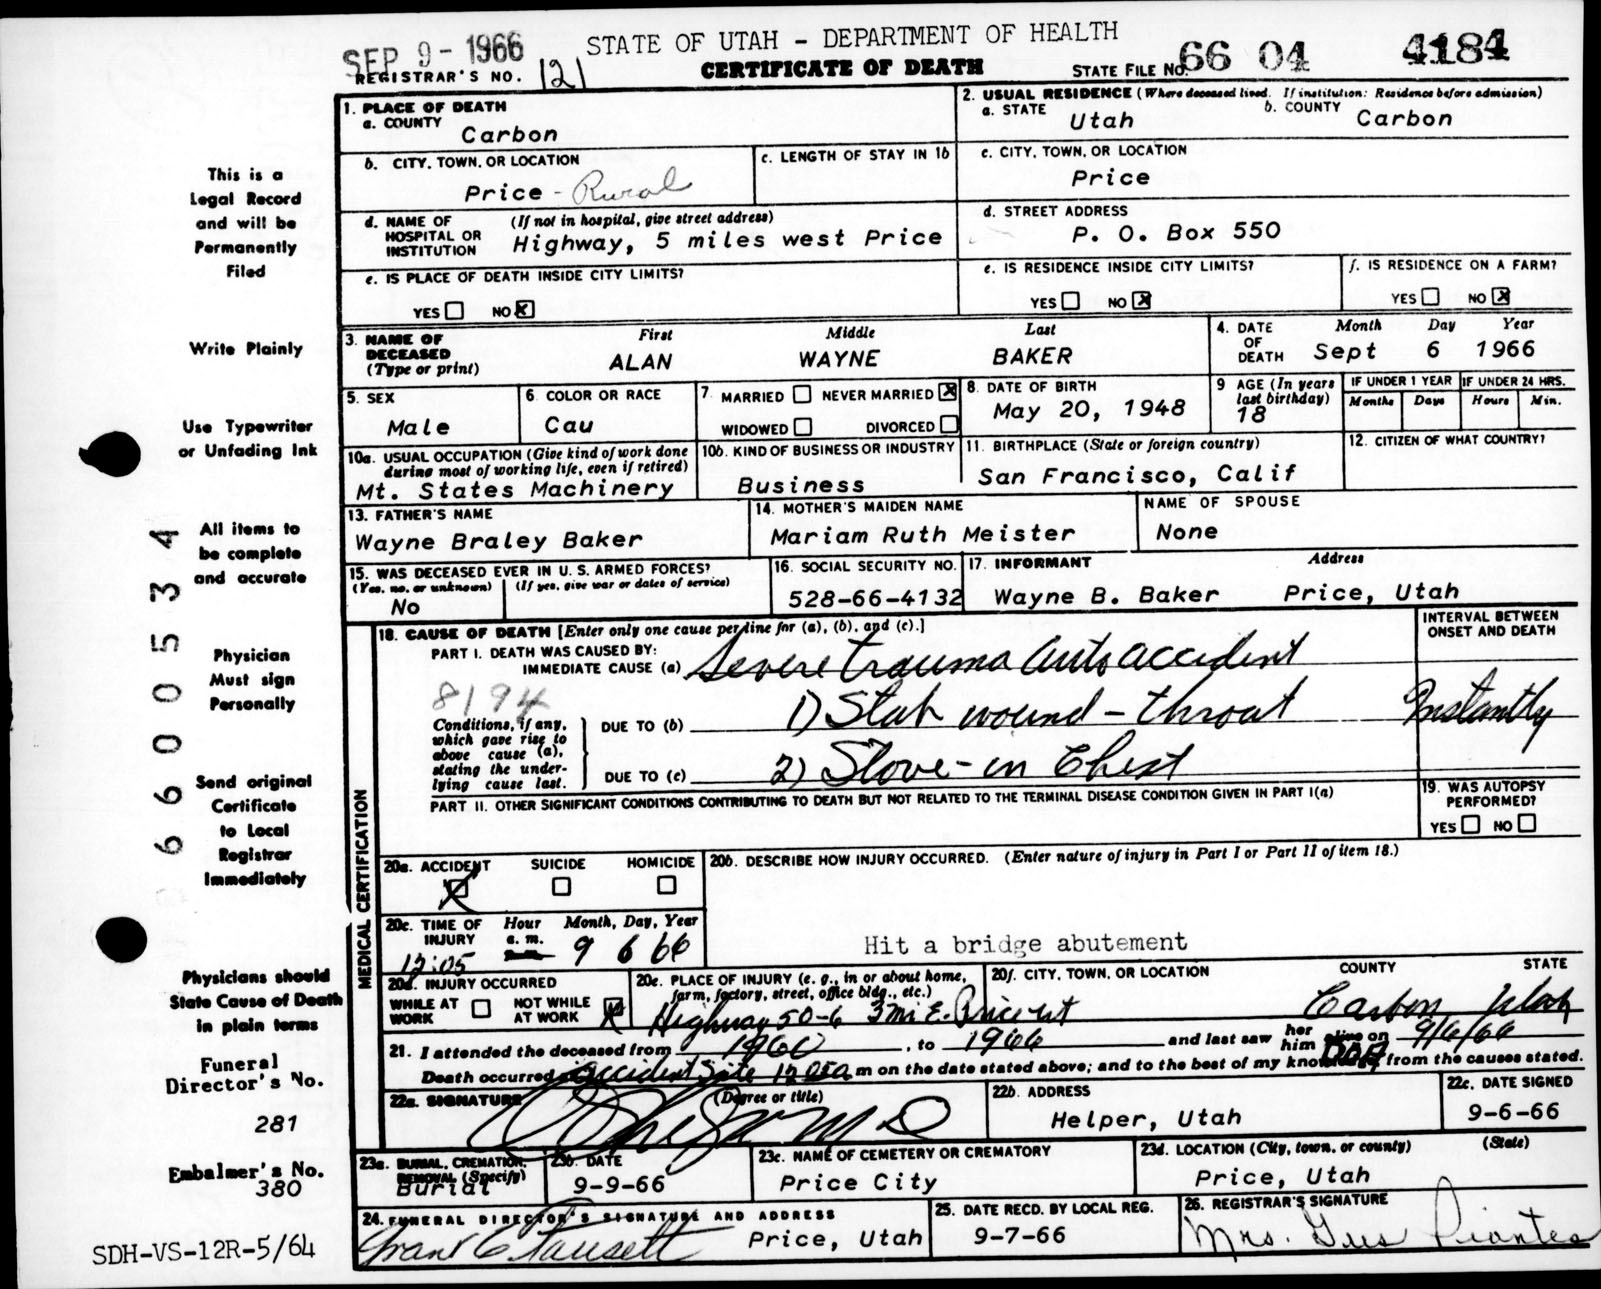 SEP 9 - 1966
STATE OF UTAH - DEPARTMENT OF HEALTH
REGISTRAR'S NO. 121
CERTIFICATE OF DEATH
STATE FILE NO. 66 04 4184
This is a
Legal Record
and will be
Permanently
Filed
Write Plainly
Use Typewriter
or Unfading Ink
All items to
be complete
and accurate
Physician
Must sign
Personally
Send original
Certificate
to Local
Registrar
Immediately
Physicians should
State Cause of Death
in plain terms
Funeral
Director's No.
281
Embalmer's No.
380
SDH-VS-12R-5/64
6600534
1. PLACE OF DEATH
a. COUNTY
Carbon
2. USUAL RESIDENCE (Where deceased lived. If institution: Residence before admission)
a. STATE Utah
b. COUNTY Carbon
b. CITY, TOWN, OR LOCATION
Price - Rural
c. LENGTH OF STAY IN 1b
c. CITY, TOWN, OR LOCATION
Price
d. NAME OF HOSPITAL OR INSTITUTION
(If not in hospital, give street address)
Highway, 5 miles west Price
d. STREET ADDRESS
P. O. Box 550
e. IS PLACE OF DEATH INSIDE CITY LIMITS?
YES NO X
e. IS RESIDENCE INSIDE CITY LIMITS?
YES NO X
f. IS RESIDENCE ON A FARM?
YES NO X
3. NAME OF DECEASED (Type or print)
First Middle Last
ALAN WAYNE BAKER
4. DATE OF DEATH
Month Day Year
Sept 6 1966
5. SEX
Male
6. COLOR OR RACE
Cau
7. MARRIED NEVER MARRIED X
WIDOWED DIVORCED
8. DATE OF BIRTH
May 20, 1948
9. AGE (In years last birthday)
18
IF UNDER 1 YEAR
Months Days
IF UNDER 24 HRS.
Hours Min.
10a. USUAL OCCUPATION (Give kind of work done during most of working life, even if retired)
Mt. States Machinery
10b. KIND OF BUSINESS OR INDUSTRY
Business
11. BIRTHPLACE (State or foreign country)
San Francisco, Calif
12. CITIZEN OF WHAT COUNTRY?
13. FATHER'S NAME
Wayne Braley Baker
14. MOTHER'S MAIDEN NAME
Mariam Ruth Meister
NAME OF SPOUSE
None
15. WAS DECEASED EVER IN U. S. ARMED FORCES?
(Yes, no, or unknown) (If yes, give war or dates of service)
No
16. SOCIAL SECURITY NO.
528-66-4132
17. INFORMANT Address
Wayne B. Baker Price, Utah
MEDICAL CERTIFICATION
18. CAUSE OF DEATH [Enter only one cause per line for (a), (b), and (c).]
INTERVAL BETWEEN ONSET AND DEATH
PART I. DEATH WAS CAUSED BY:
IMMEDIATE CAUSE (a) Severe trauma Auto accident
8194
Conditions, if any, which gave rise to above cause (a), stating the underlying cause last.
DUE TO (b) 1) Stab wound - throat
Instantly
DUE TO (c) 2) Stove-in Chest
PART II. OTHER SIGNIFICANT CONDITIONS CONTRIBUTING TO DEATH BUT NOT RELATED TO THE TERMINAL DISEASE CONDITION GIVEN IN PART I(a)
19. WAS AUTOPSY PERFORMED?
YES NO
20a. ACCIDENT SUICIDE HOMICIDE
X
20b. DESCRIBE HOW INJURY OCCURRED. (Enter nature of injury in Part I or Part II of item 18.)
Hit a bridge abutement
20c. TIME OF INJURY
Hour Month, Day, Year
a. m.
12:05 9 6 66
20d. INJURY OCCURRED
WHILE AT WORK NOT WHILE AT WORK X
20e. PLACE OF INJURY (e. g., in or about home, farm, factory, street, office bldg., etc.)
Highway 50-6 3 mi E. Price ut
20f. CITY, TOWN, OR LOCATION COUNTY STATE
Carbon Utah
21. I attended the deceased from 1960, to 1966 and last saw her him alive on 9/6/66
DOA
Death occurred accident site 12 05 a m on the date stated above; and to the best of my knowledge, from the causes stated.
22a. SIGNATURE (Degree or title)
MD
22b. ADDRESS
Helper, Utah
22c. DATE SIGNED
9-6-66
23a. BURIAL, CREMATION, REMOVAL (Specify)
Burial
23b. DATE
9-9-66
23c. NAME OF CEMETERY OR CREMATORY
Price City
23d. LOCATION (City, town, or county) (State)
Price, Utah
24. FUNERAL DIRECTOR'S SIGNATURE AND ADDRESS
Price, Utah
25. DATE RECD. BY LOCAL REG.
9-7-66
26. REGISTRAR'S SIGNATURE
Mrs. Gus